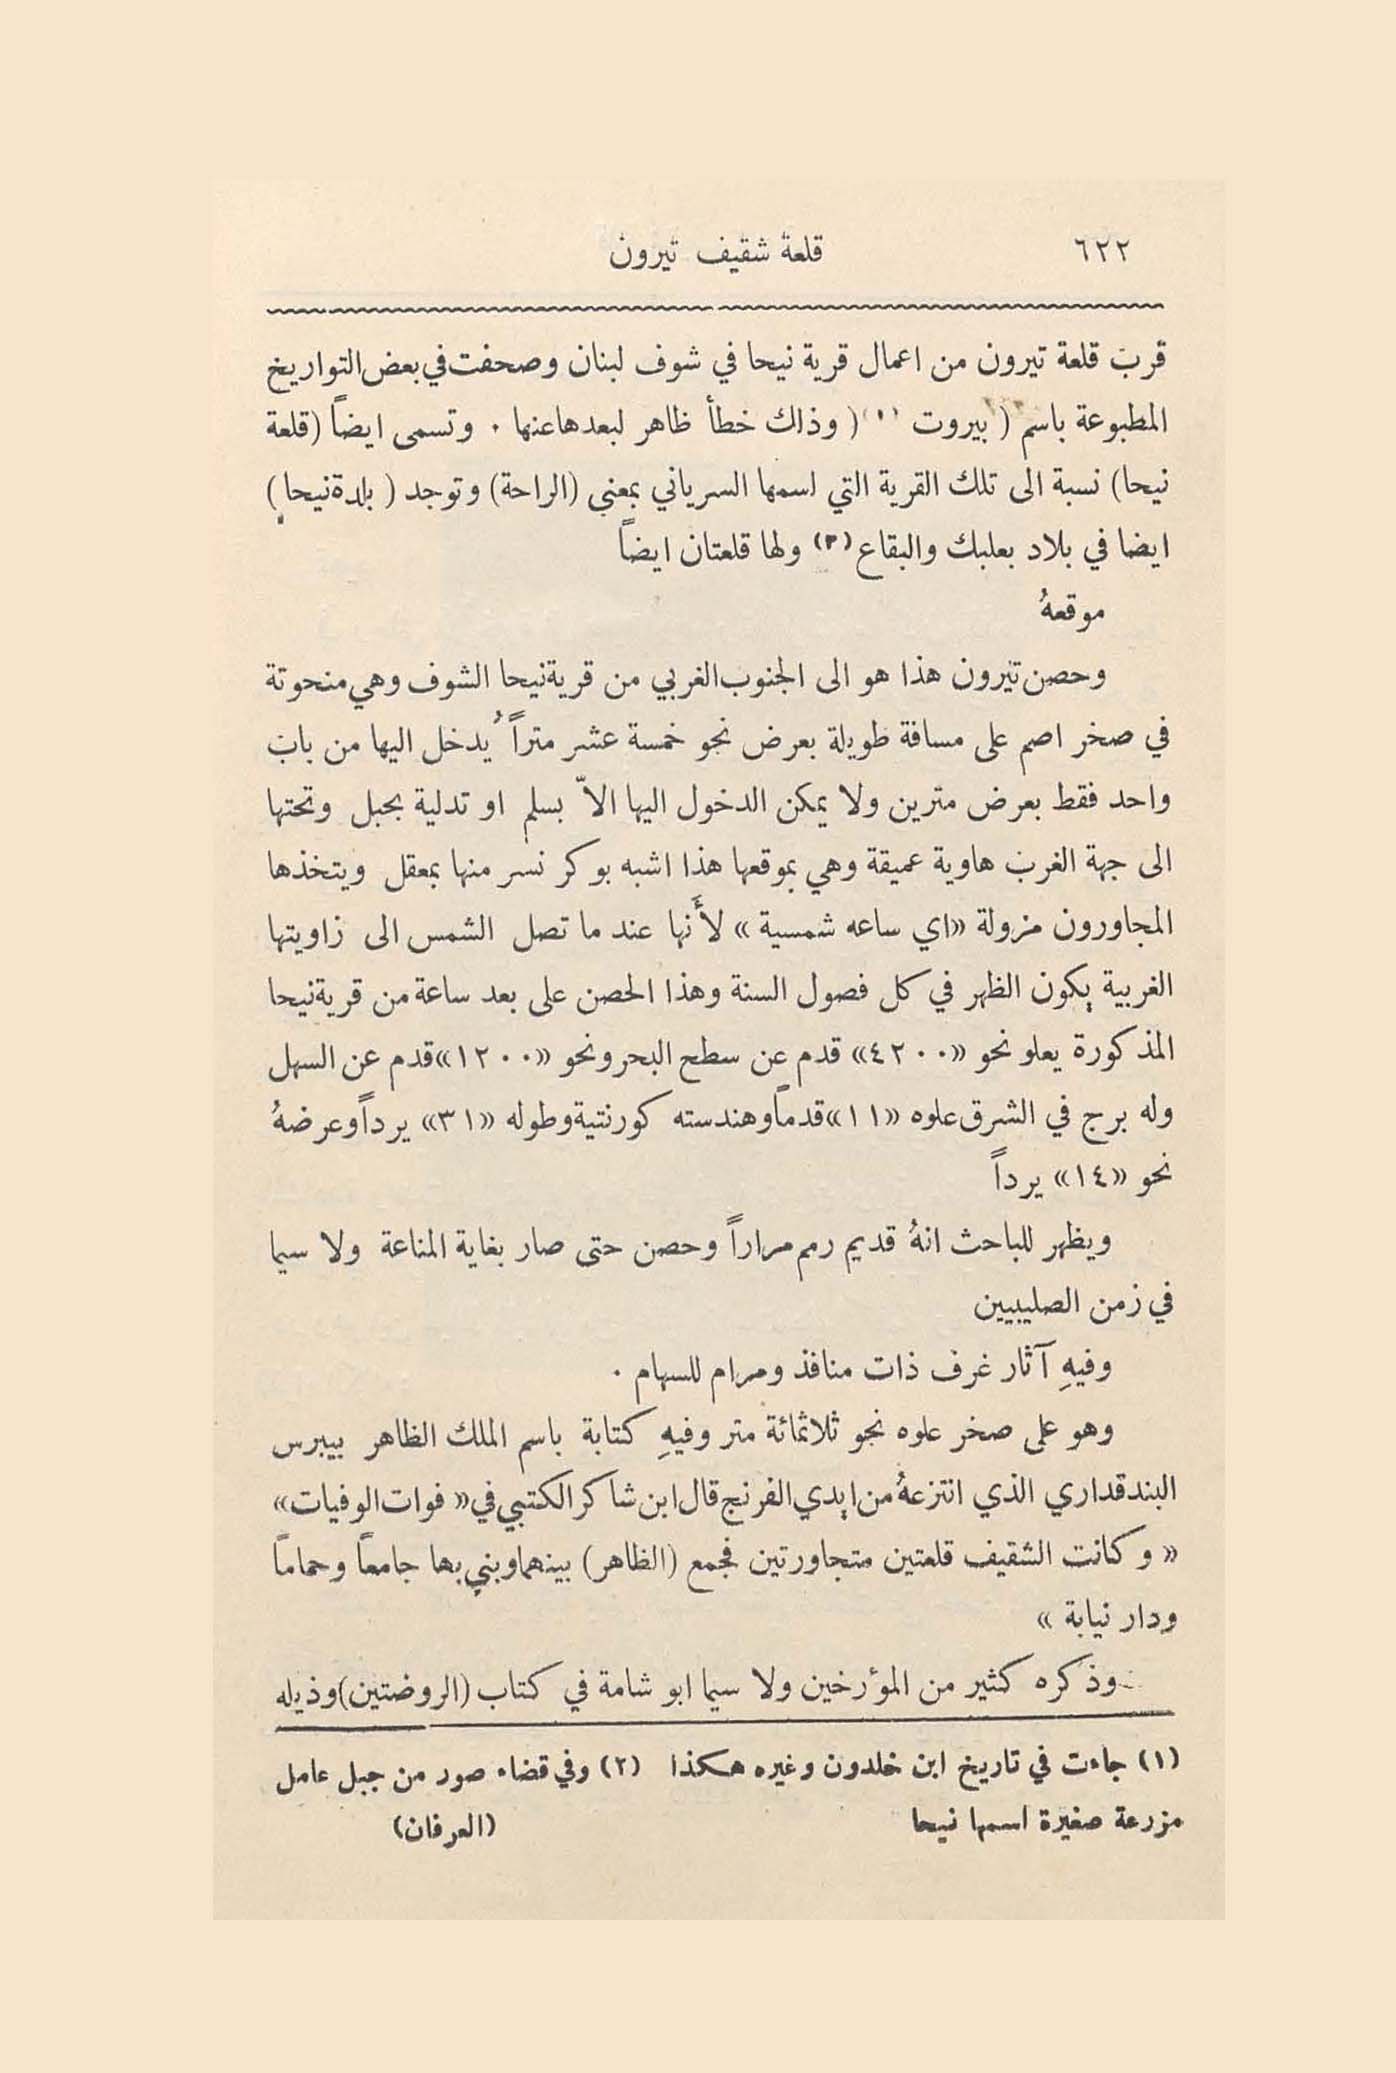 ٦٢٢
قلعة شقيف تيرون
قرب قلعة تيرون من اعمال قرية نيحا في شوف لبنان وصحفت في بعض التواريخ
المطبوعة باسم ( بيروت (١) ( وذاك خطأ ظاهر لبعدها عنها . وتسمى ايضاً (قلعة
نيحا) نسبة الى تلك القرية التي اسمها السرياني بمعنى (الراحة) وتوجد ( بلدة نيحا )
ايضا في بلاد بعلبك والبقاع (٢) ولها قلعتان ايضاً
موقعهُ
وحصن تيرون هذا هو الى الجنوب الغربي من قرية نيحا الشوف وهي منحوتة
في صخر اصم على مسافة طويلة بعرض نحو خمسة عشر متراً يُدخل اليها من باب
واحد فقط بعرض مترين ولا يمكن الدخول اليها الاّ بسلم او تدلية بحبل وتحتها
الى جهة الغرب هاوية عميقة وهي بموقعها هذا اشبه بوكر نسر منها بمعقل ويتخذها
المجاورون مزولة «اي ساعه شمسية» لأَنها عند ما تصل الشمس الى زاويتها
الغربية يكون الظهر في كل فصول السنة وهذا الحصن على بعد ساعة من قرية نيحا
المذكورة يعلو نحو «٤٢٠٠» قدم عن سطح البحر ونحو «١٢٠٠» قدم عن السهل
وله برج في الشرق علوه «١١» قدماً وهندسته كورنتية وطوله «٣١» يرداً وعرضهُ
نحو «١٤» يرداً
ويظهر للباحث انهُ قديم رمم مراراً وحصن حتى صار بغاية المناعة ولا سيما
في زمن الصليبيين
وفيهِ آثار غرف ذات منافذ ومرام للسهام .
وهو على صخر علوه نحو ثلاثمائة متر وفيهِ كتابة باسم الملك الظاهر بيبرس
البندقداري الذي انتزعهُ من ايدي الفرنج قال ابن شاكر الكتبي في « فوات الوفيات»
« وكانت الشقيف قلعتين متجاورتين فجمع (الظاهر) بينهما وبنى بها جامعاً وحماماً
ودار نيابة »
وذكره كثير من المؤرخين ولا سيما ابو شامة في كتاب (الروضتين) وذيله
(١) جاءت في تاريخ ابن خلدون وغيره هكذا (٢) وفي قضاء صور من جبل عامل
مزرعة صغيرة اسمها نيحا (العرفان)